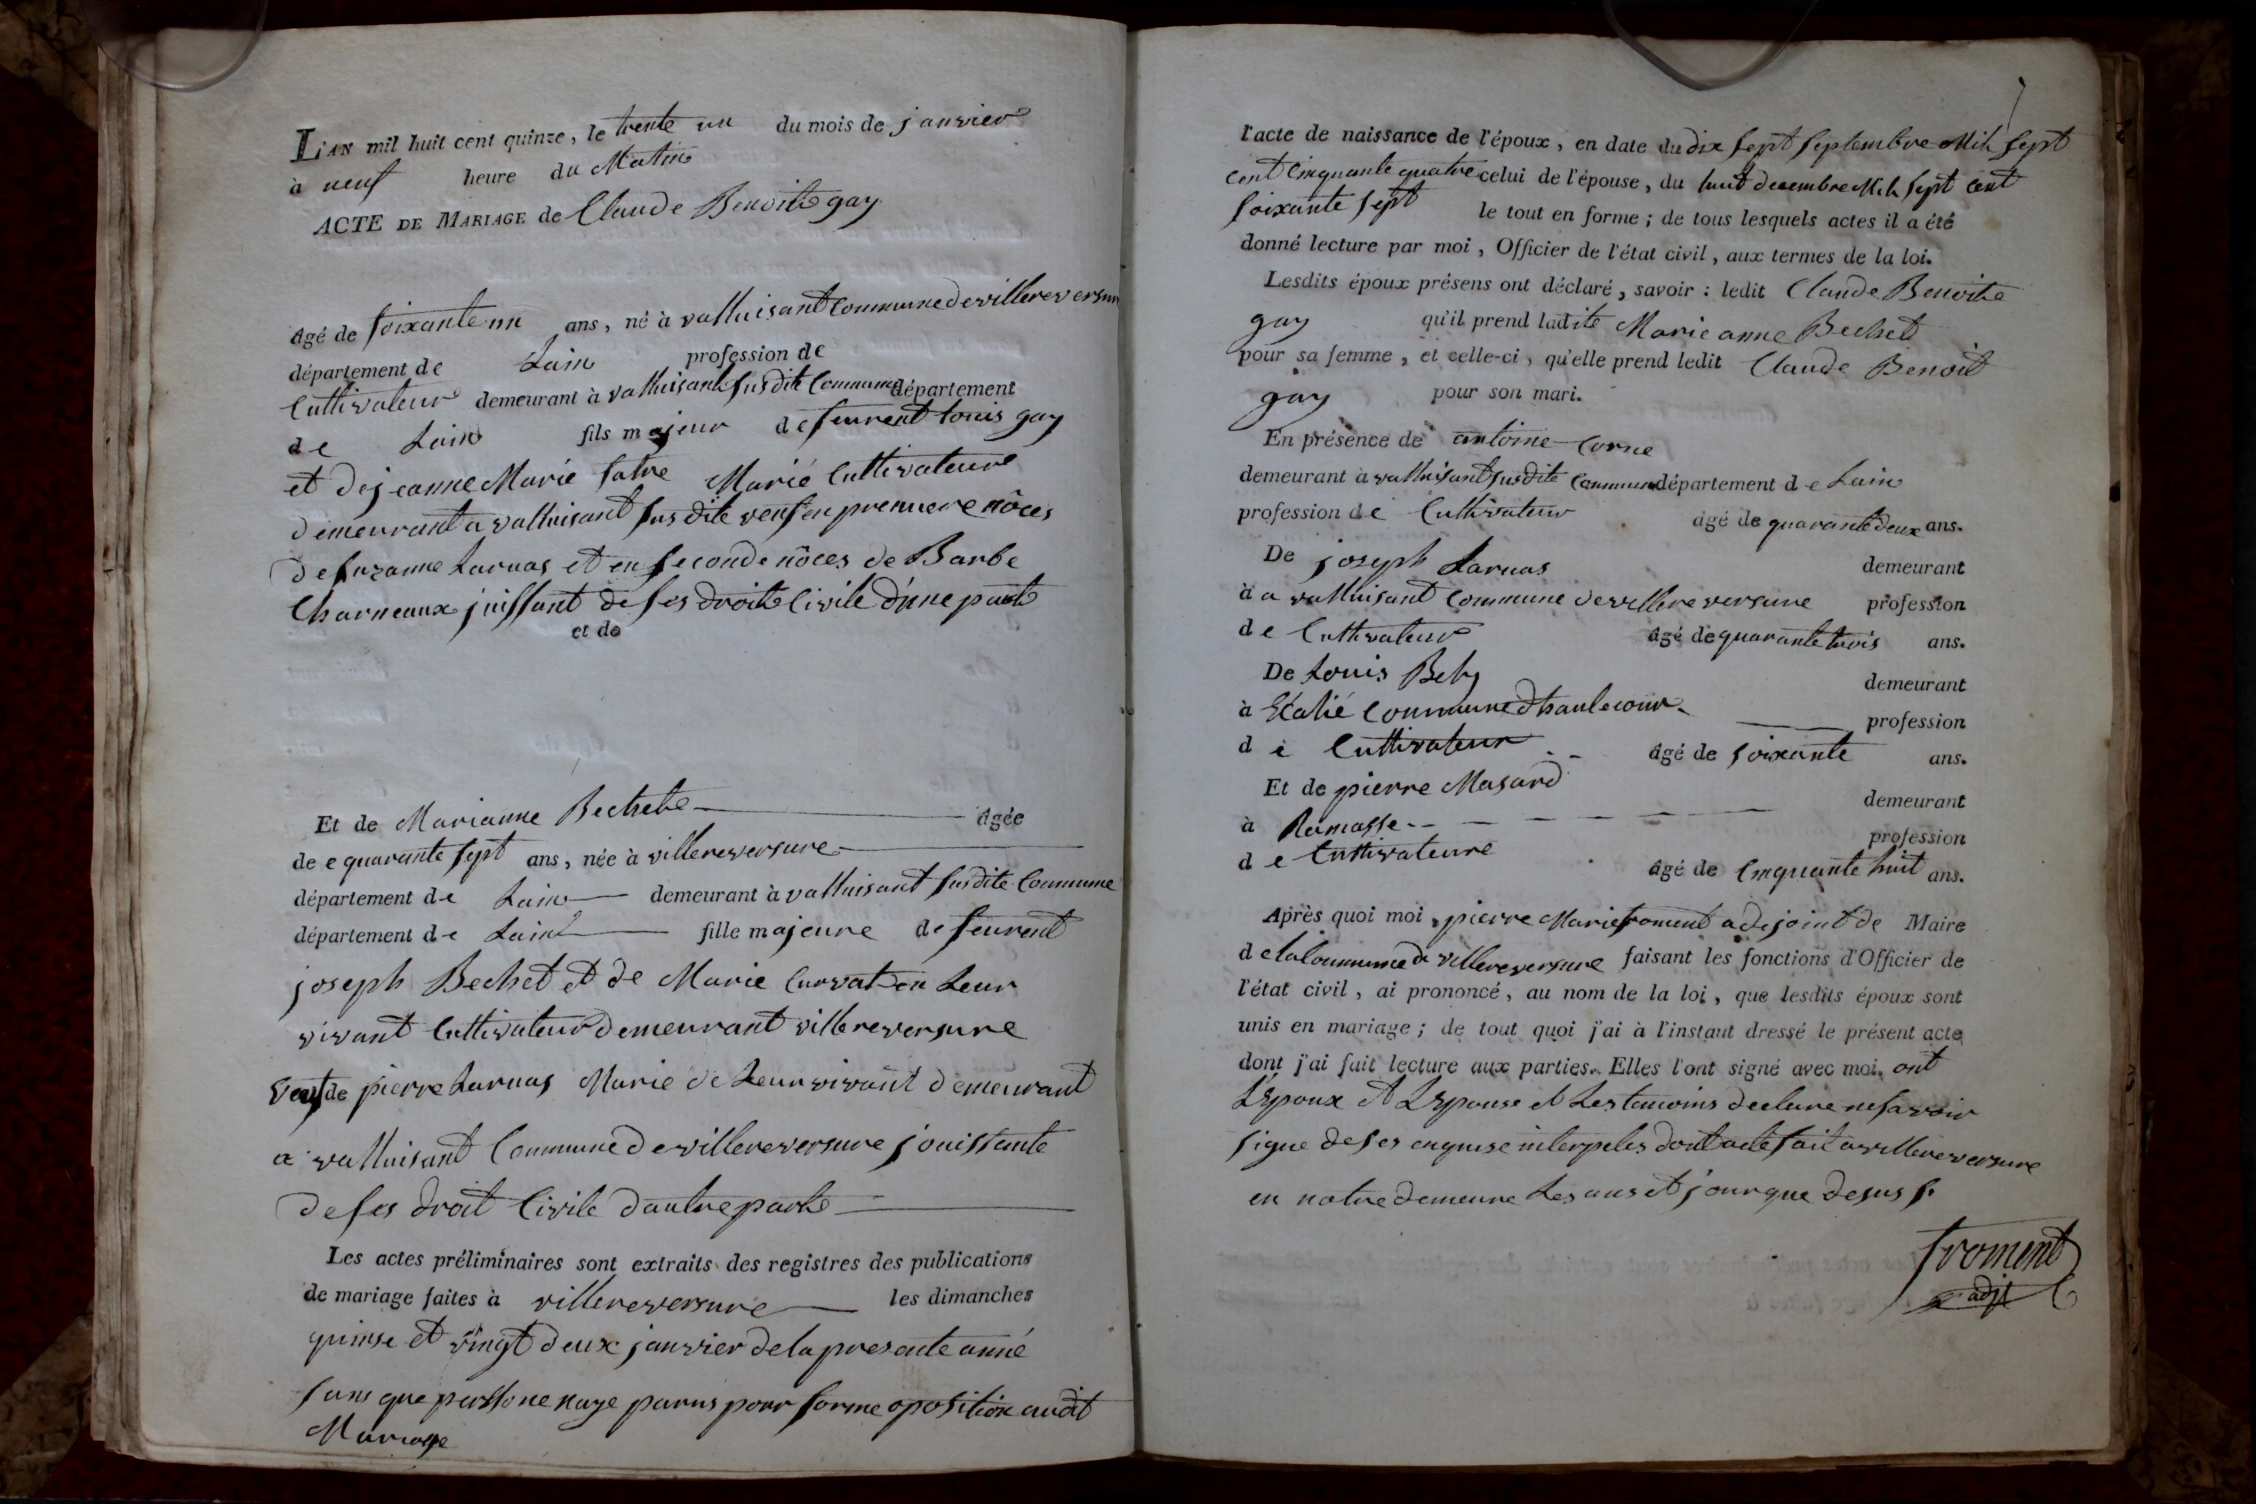 L'AN mil huit cent quinze, le trente un du mois de janvier
à neuf heure du Matin
ACTE DE MARIAGE de Claude Benoite gay
âgé de soixante un ans, né à valluisant commune de villereversure
département de Lain profession de
Cultivateur demeurant à valluisant susdite Commune département
de Lain fils majeur de feurent louis gay
et de jeanne Marie fatre Marié Cultivateure
demeurant a valluisant susdite veuf en premiere nôces
de suzanne Larnas et en seconde nôces de Barbe
Charneaux juissant de ses droite Civile d'une parte
et de
Et de Marianne Bechete âgée
de e quarante sept ans, née à villereversure
département de Lain demeurant à valluisant susdite Commune
département de Lain fille majeure de feurent
joseph Bechet et de Marie Curvat en Leur
vivant Cultivateur demeurant villereversure
Veuf de pierre Larnas Marie de Leur vivant demeurant
a valluisant Commune de villereversure jouissante
de ses droit Civile dautre parte
Les actes préliminaires sont extraits des registres des publications
de mariage faites à villereversure les dimanches
quinse et vingt deux janvier de la presente anné
sans que perssone naye parus pour forme oposition audit
Mariage
l'acte de naissance de l'époux, en date du dix sept septembre Mil sept
cent Cinquante quatre celui de l'épouse, du huit decembre Mil sept cent
soixante sept le tout en forme ; de tous lesquels actes il a été
donné lecture par moi, Officier de l'état civil, aux termes de la loi.
Lesdits époux présens ont déclaré, savoir : ledit Claude Benoite
gay qu'il prend ladite Marie anne Bechet
pour sa femme, et celle-ci, qu'elle prend ledit Claude Benoit
gay pour son mari.
En présence de antoine Corne
demeurant à valluisant susdite Commune département de Lain
profession de Cultivateur âgé de quarante deux ans.
De joseph Larnas demeurant
à a valluisant Commune de villereversure profession
de Cultivateur âgé de quarante trois ans.
De Louis Bely demeurant
à Commune dhautecour profession
de Cultivateur âgé de soixante ans.
Et de pierre Masard demeurant
à Ramasse profession
de Cultivateure âgé de Cinquante huit ans.
Après quoi moi pierre Marie froment adejoint de Maire
de la Commune de villereversure faisant les fonctions d'Officier de
l'état civil, ai prononcé, au nom de la loi, que lesdits époux sont
unis en mariage ; de tout quoi j'ai à l'instant dressé le présent acte
dont j'ai fait lecture aux parties. Elles l'ont signé avec moi. ont
L'Epoux et L'Epouse et Les temoins declare ne savoir
signe de ses enquise interpeles dont acte fait a villereversure
en notre demeure Les ans et jour que desus s.
froment
adjt